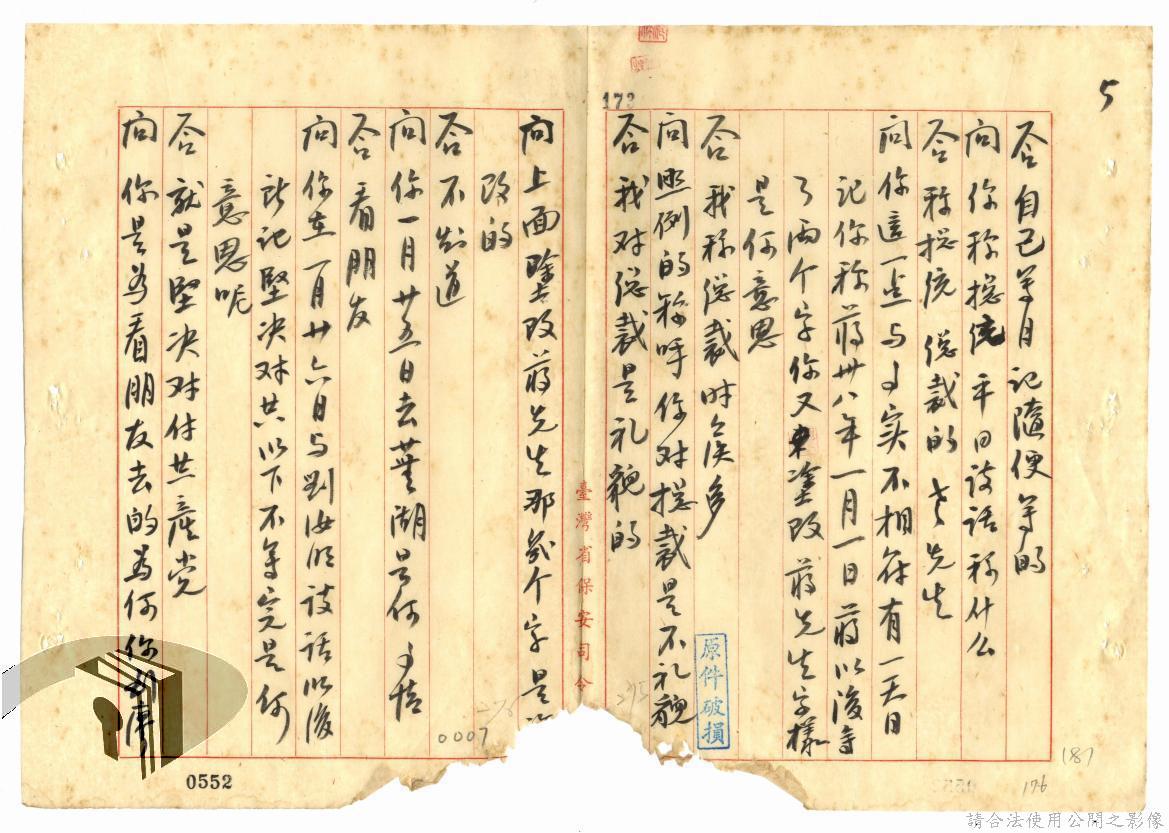 5
答 自己筆自記隨便寫的
问 你称捴统平日谈话称什么
答 称捴统 總裁的 老先生
问 你這一点与事实不相符有一天日
记你称蒋卅八年一月一日蒋以後寫
了兩个字你又塗改蒋先生字樣
是何意思
答 我称總裁时候多
问 照例的称呼你对捴裁是不礼貌
答 我对總裁是礼貌的
173
臺灣省保安司令
问 上面塗改蒋先生那幾个字是
改的
答 不知道
问 你一月廿五日去蕪湖是何事情
答 看朋友
问 你在一月廿六日与劉汝明谈话以後
日记堅决对共以下不寫完是何
意思呢
答 就是堅决对付共產党
问 你是为看朋友去的为何你
原件破損
0007
0552
187
176
請合法使用公開之影像